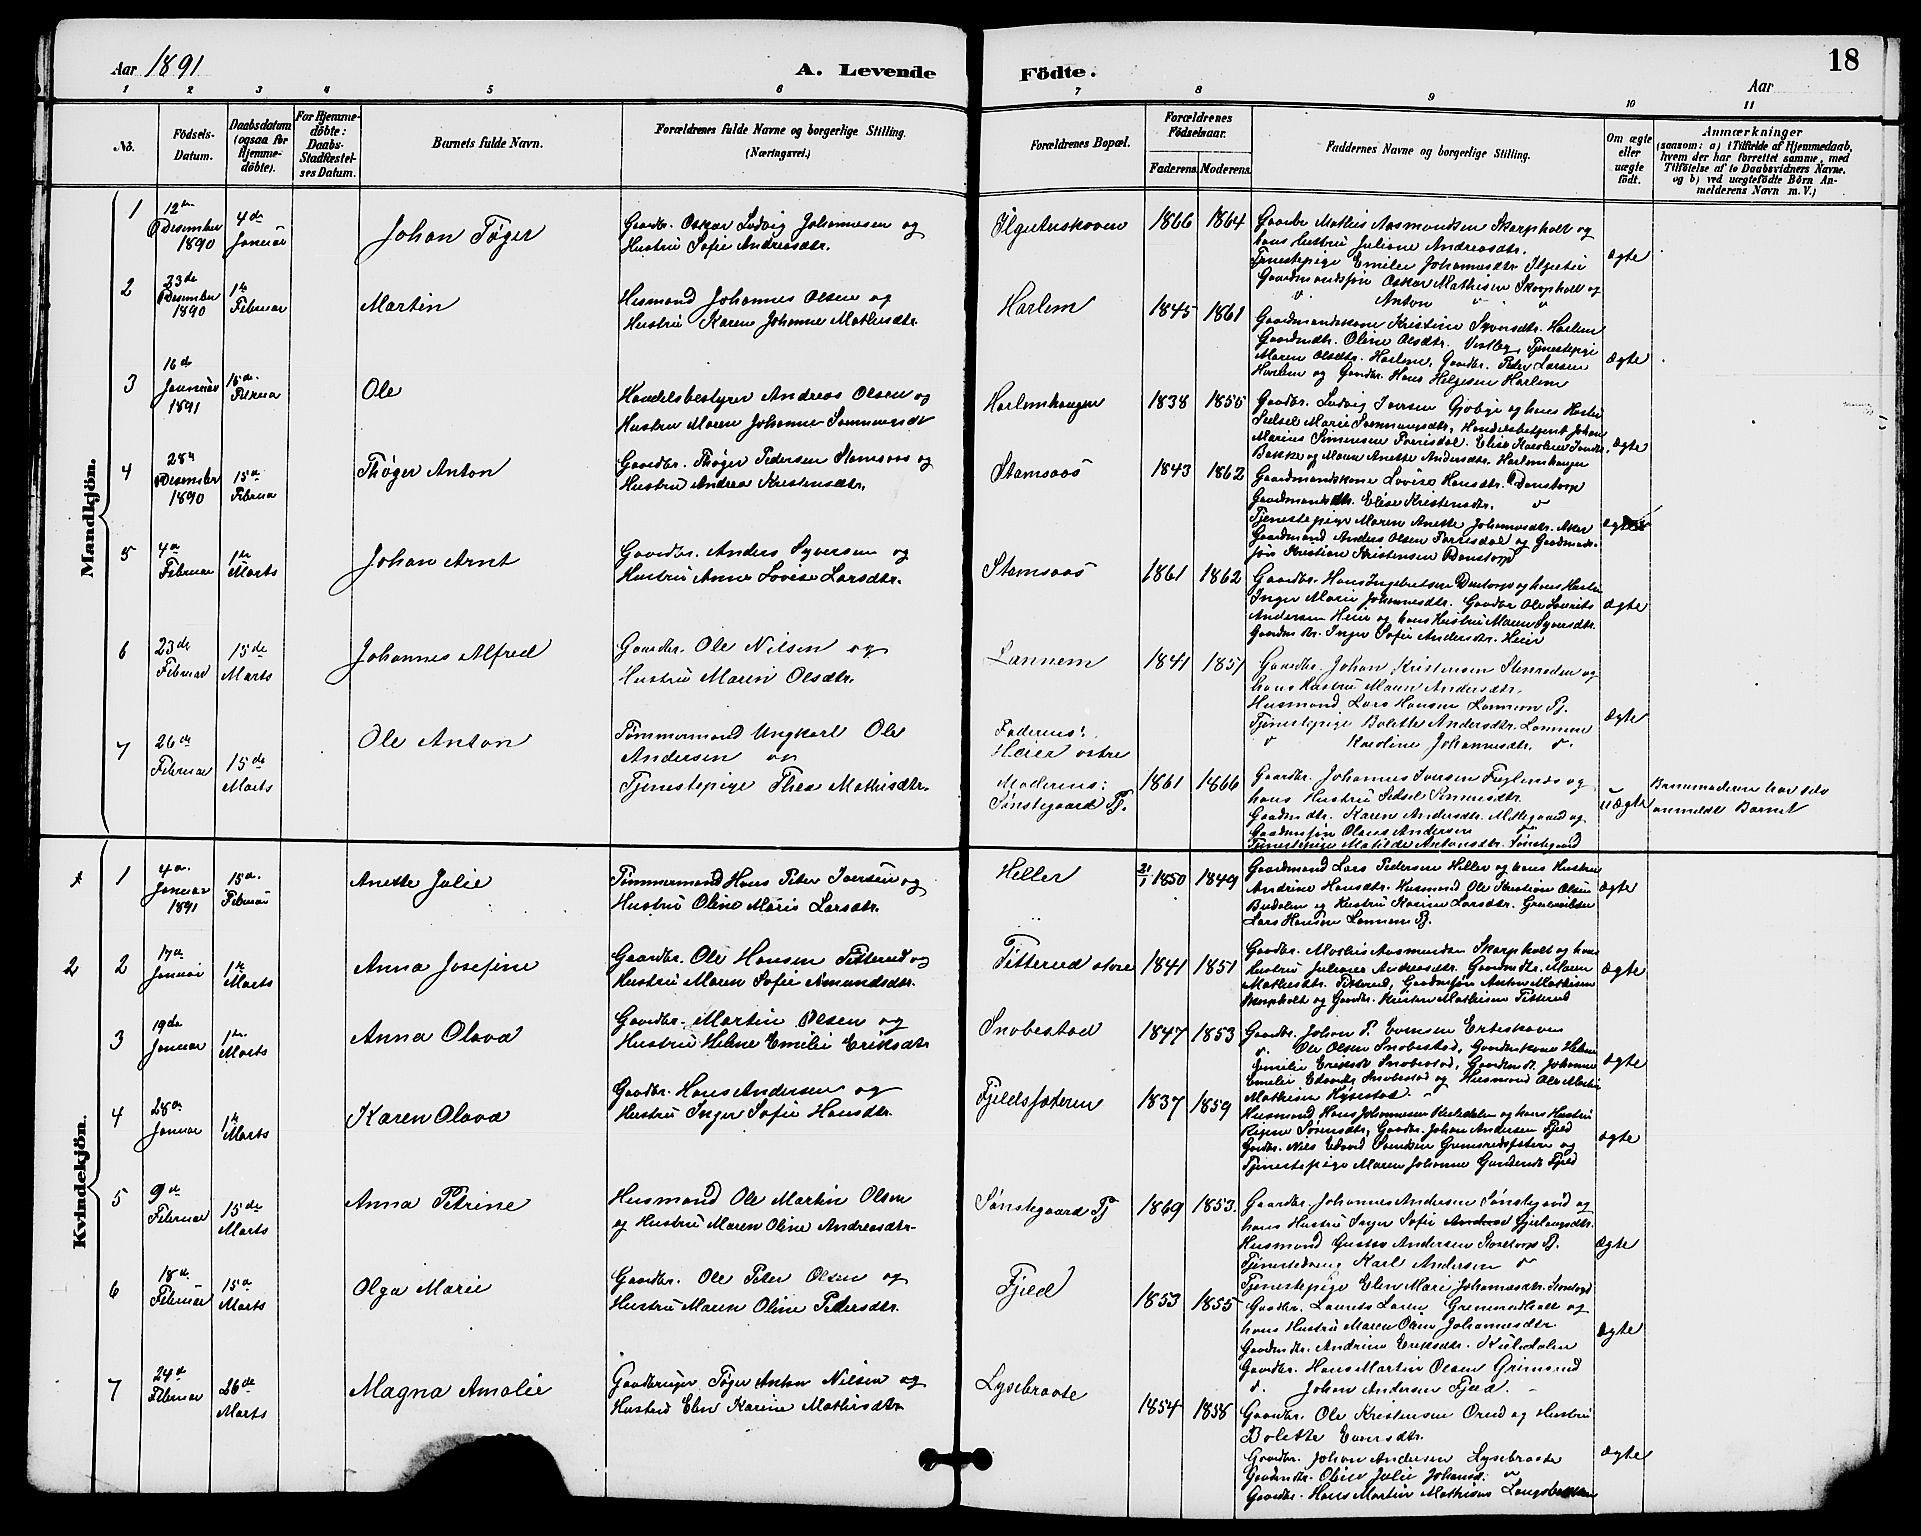 Aar 1891
A. Levende Födte.
18
Aar
1 2 3 4 5 6 7 8 9 10 11
No.
Födsels-
Datum.
Daabsdatum
(ogsaa for
Hjemme-
döbte).
For Hjemme-
döbte:
Daabs-
Stadfæstel-
ses Datum.
Barnets fulde Navn.
Forældrenes fulde Navne og borgerlige Stilling.
(Næringsvei.)
Forældrenes Bopæl.
Forældrenes
Födselsaar.
Faderens. Moderens.
Faddernes Navne og borgerlige Stilling.
Om ægte
eller
uægte
födt.
Anmærkninger
(saasom: a) i Tilfælde af Hjemmedaab,
hvem der har forrettet samme, med
Tilföielse af to Daabsvidners Navne.
og b) ved uægtefödte Börn An-
melderens Navn m. V.)
Mandkjön.
1
12te
Desember
1890
4de
Januar
Johan Tøger
Gaardbr. Oskar Ludvig Johannesen og
Hustru Sofie Andreasdtr.
1866 1864
Gaardbr Mathis Aasmundsen Skarpholt og
hans Hustru Juliane Andreasdtr.
Tjenestepige Emilie Johannesdtr.
Gaardmandssøn Oskar Mathisen Skarpholt og
" Anton " "
ægte
2
23de
Desember
1890
1te
Februar
Martin
Husmand Johannes Olsen og
Hustru Karen Johanne Mathisdtr.
Harlem
1845 1861
Gaardmandskone Kristine Syversdtr. Harlem
Gaardmdtr. Oline Olsdtr. Vestby, Tjenestepige
Maren Olsdtr. Harlem, Gaardbr. Peter Larsen
Harlem og Gaardbr. Hans Helgesen Harlem
ægte
3
16de
Januar
1891
15de
Februar
Ole
Handelsbestyrer Andreas Olsen og
Hustru Maren Johanne
Harlemhaugen
1838 1855
Gaardbr. Ludvig Iversen og hans Hustru
Sedsel Marie Handelsbetjent Johan
Marius Simensen Elise Karoline
Bakke og Maren Anette Andersdtr. Harlemhaugen
ægte
4
28de
Desember
1890
15de
Februar
Thøger Anton
Gaardbr. Thøger Pedersen Stamsaas og
Hustru Andrea Kristensdtr.
Stamsaas
1843 1862
Gaardmandskone Lovise Hansdtr. Donstorp
Gaardmandsdtr. Elise Kristensdtr. "
Tjenestepige Maren Anette Johannesdtr. Aker
Gaardmand Anders Olsen og Gaardmands-
søn Kristian Kristensen Donstorp
ægte
5
4de
Februar
1te
Marts
Johan Arnt
Gaardbr. Anders Syversen og
Hustru Anne Lovise Larsdtr.
Stamsaas
1861 1862
Gaardbr. Hans Ingebretsen Donstorp og hans Hustru
Inger Marie Johannesdtr. Gaardbr Ole Laurits
Andersen Heier og hans Hustru Maren Syversdtr.
Gaardmdtr. Inger Sofie Andersdtr. Heier
ægte
6
23de
Februar
15de
Marts
Johannes Alfred
Gaardbr. Ole Nilsen og
Hustru Maren Olsdtr.
Lannem
1841 1851
Gaardbr. Johan Kristensen Stenreden og
hans Hustru Maren Andersdtr.
Husmand Lars Hansen Lannem Pl.
Tjenestepige Bolette Andersdtr. Lannem
" Karoline Johannesdtr. ".
ægte
7
26de
Februar
15de
Marts
Ole Anton
Tømmermand Ungkarl Ole
Andersen og
Tjenestepige Thea Mathisdtr.
Faderens:
Heier østre
Moderens:
Sønstegaard Pl.
1861 1866
Gaardbr. Johannes Iversen Fuglenæs og
hans Hustru Sedsel Simensdtr.
Gaardmdtr. Karen Andersdtr. Mittegaard og
Gaardmsøn Olaus Andersen "
Tjenestepige Matilde Antonsdtr. Sønstegaard
uægte
Barnmoderen har selv
anmeldt Barnet
Kvindekjön.
1
1
4de
Januar
1891
15de
Februar
Anette Julie
Tømmermand Hans Peter Iversen og
Hustru Oline Marie Larsdtr.
Heller
21/1 1850 1849
Gaardmand Lars Pedersen Heller og hans Hustru
Andrine Hansdtr. Husmand Ole Kristian Olsen
Budalen og Hustru Karine Larsdtr.
Lars Hansen Lannem Pl.
ægte
2
2
17de
Januar
1te
Marts
Anna Josefine
Gaardbr. Ole Hansen Fitterud og
Hustru Maren Sofie Amundsdtr.
Fitterud østre
1841 1851
Gaardbr. Mathis Aasmundsen Skarpholt og hans
Hustru Juliane Andreasdtr. Gaardmdtr. Maren
Mathisdtr. Fitterud, Gaardmsøn Anton Mathisen
Skarpholt og Gaardbr. Kristen Mathisen Fitterud
ægte
3
19de
Januar
1te
Marts
Anna Olava
Gaardbr. Martin Olsen og
Hustru Helene Emilie Eriksdtr
Snobestad
1847 1853
Gaardbr. Johan P. Evensen Erteskoven
". Ole Olsen Snobestad, Gaardmkone Helene
Emilie Eriksdt Snobestad, Gaardmdt. Johanne
Emilie Snobestad og Husmand Ole Martin
Mathisen
ægte
4
28de
Januar
1te
Marts
Karen Olava
Gaardbr. Hans Andersen og
Hustru Inger Sofie Hansdtr.
Fjeldsfæteren
1837 1859
Husmand Hans Johannesen og hans Hustru
Sørensdtr, Gaardbr. Johan Andersen Fjeld
Gardbr. Nils og
Tjenestepige Maren Johanne Fjeld
ægte
5
9de
Februar
15de
Marts
Anna Petrine
Husmand Ole Martin Olsen
og Hustru Maren Oline Andreasdtr.
Sønstegaard Pl
1869 1853.
Gaardbr. Johannes Andersen Sønstegaard og
hans Hustru Inger Sofie
Husmand Gustav Andersen Pl.
Tjenestedreng Karl Andersen "
Tjenestepige Elen Marie Johannesdtr.
ægte
6
18de
Februar
15de
Marts
Olga Marie
Gaardbr. Ole Peter Olsen og
Hustru Maren Oline Pedersdtr.
Fjeld
1853 1855
Gaardbr. Laurits og
hans Hustru Maren Oline Johannesdtr.
Gaardmdtr. Andrine Eriksdtr.
Gaardbr. Hans Martin Olsen Grimsrud
". Johan Andersen Fjeld.
ægte
7
24de
Februar
26de
Marts
Magna Amalie
Gaardbruger Tøger Anton Nilsen og
Hustru Elen Karine Mathisdtr
Lysebraate
1854 1858
Gaardbr. Ole Kristensen Orud og Hustru
Bolette Evensdtr.
Gaardbr. Johan Andersen Lysebraate
Gaardmdtr. Oline Julie "
Gaardbr. Hans Martin Mathisen
ægte